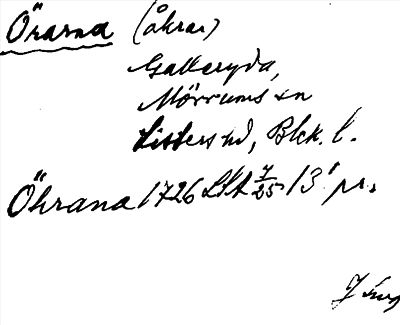 Örarna (åkrar)
Galleryda,
Mörrums sn
Listers hd, Blek. l.
Öhrana 1726 LSA 7/25 13' pr.